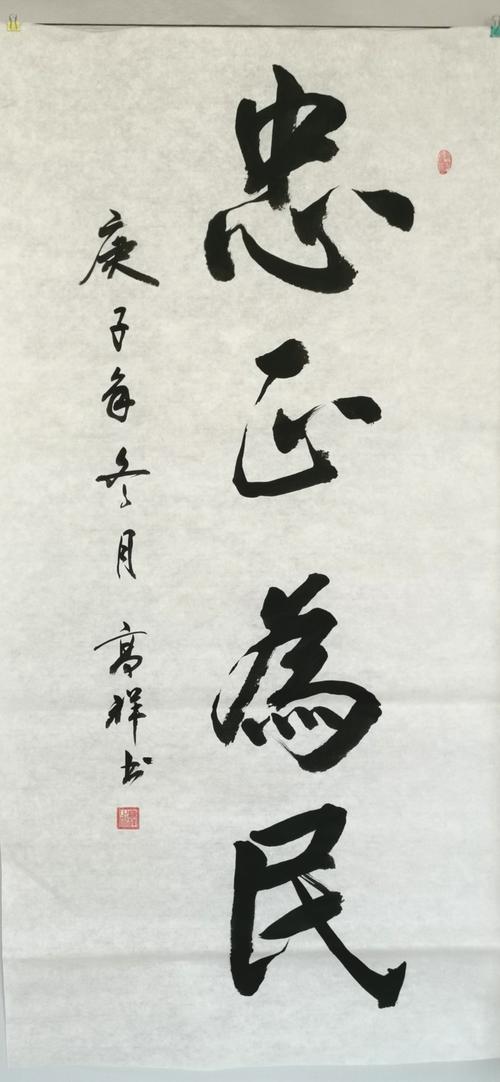 忠正為民
庚子年冬月高祥书